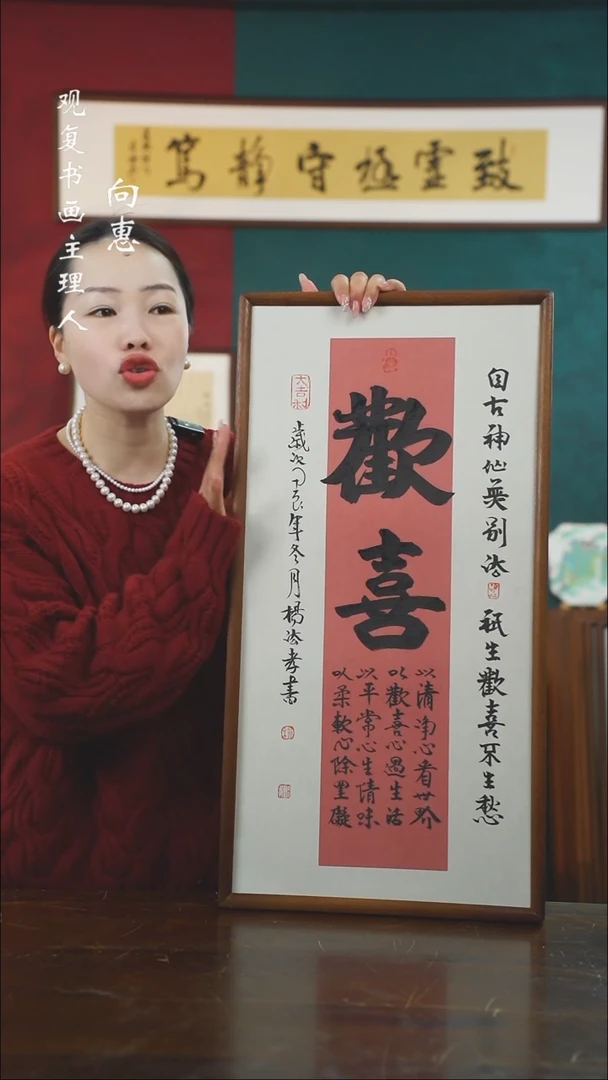 观复书画主理人
向惠
致虛極守靜篤
自古神仙無別法 祇生歡喜不生愁
歡喜
以清净心看世界
以歡喜心過生活
以平常心生情味
以柔軟心除罣礙
大吉利
歲次年冬月楊法孝書